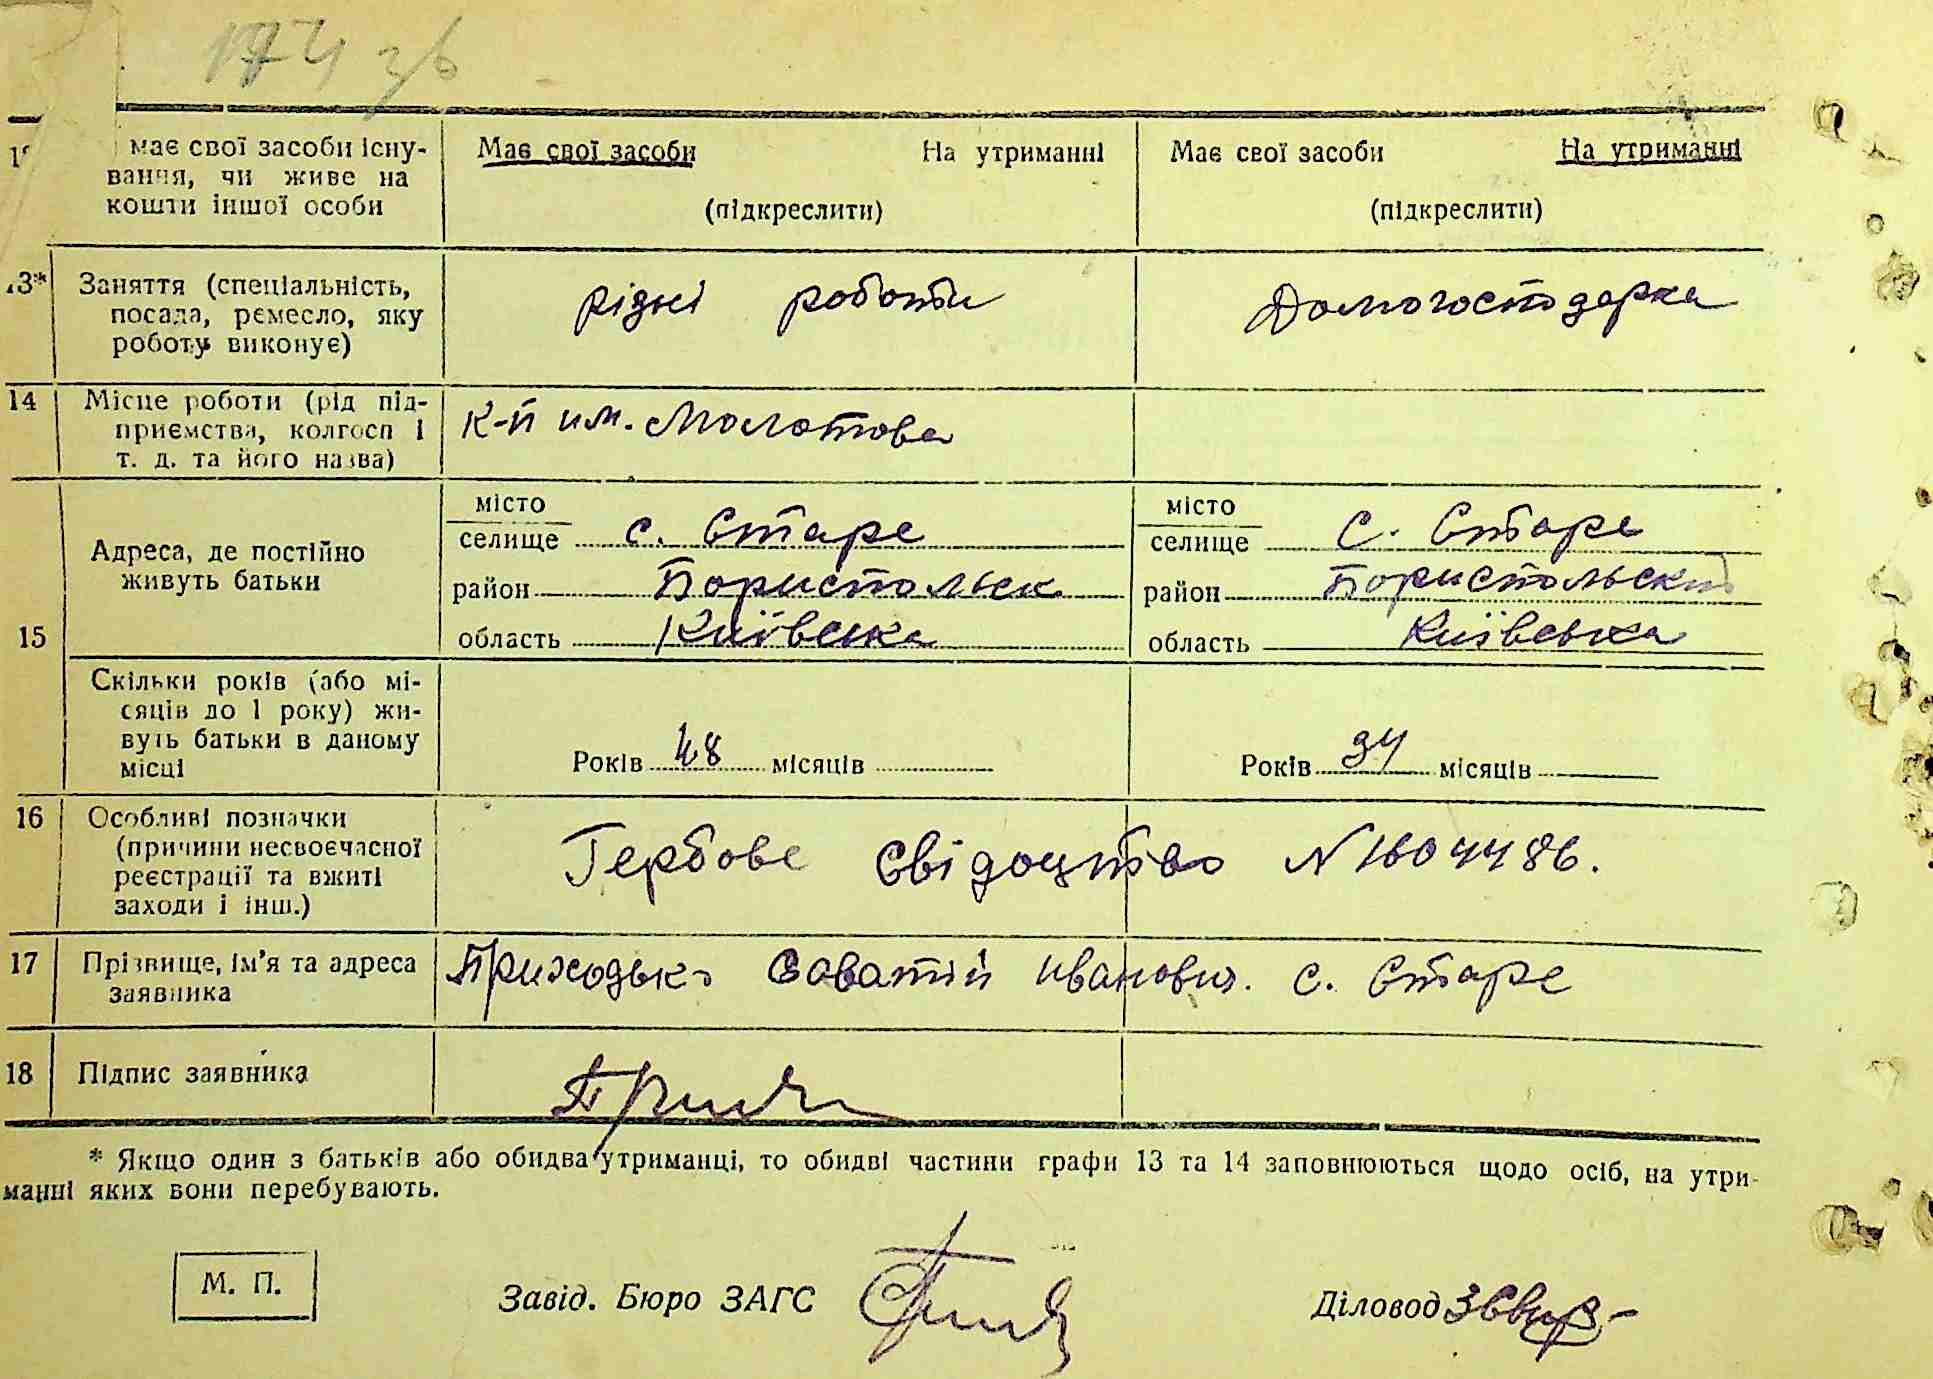 174 зв
має свої засоби існу- Має свої засоби На утриманні Має свої засоби На утриманні
вання, чи живе на
кошти іншої особи (підкреслити) (підкреслити)
13* Заняття (спеціальність, рідні роботи Домогосподарка
посада, ремесло, яку
роботу виконує)
14 Місце роботи (рід під- К-п им. Молотова
приємства, колгосп і
т. д. та його назва)
15 Адреса, де постійно живуть батьки
місто місто
селище с. Старе селище с. Старе
район Бориспольск район Бориспольский
область Київська область Київська
Скільки років (або мі-
сяців до 1 року) жи-
вуть батьки в даному
місці Років 48 місяців Років 34 місяців
16 Особливі позначки
(причини несвоєчасної Гербове свідоцтво N 1604486.
реєстрації та вжиті
заходи і інш.)
17 Прізвище, ім'я та адреса Приходько Саватій Иванович. с. Старе
заявника
18 Підпис заявника
* Якщо один з батьків або обидва утриманці, то обидві частини графи 13 та 14 заповнюються щодо осіб, на утри-
манні яких вони перебувають.
М. П. Завід. Бюро ЗАГС Діловод